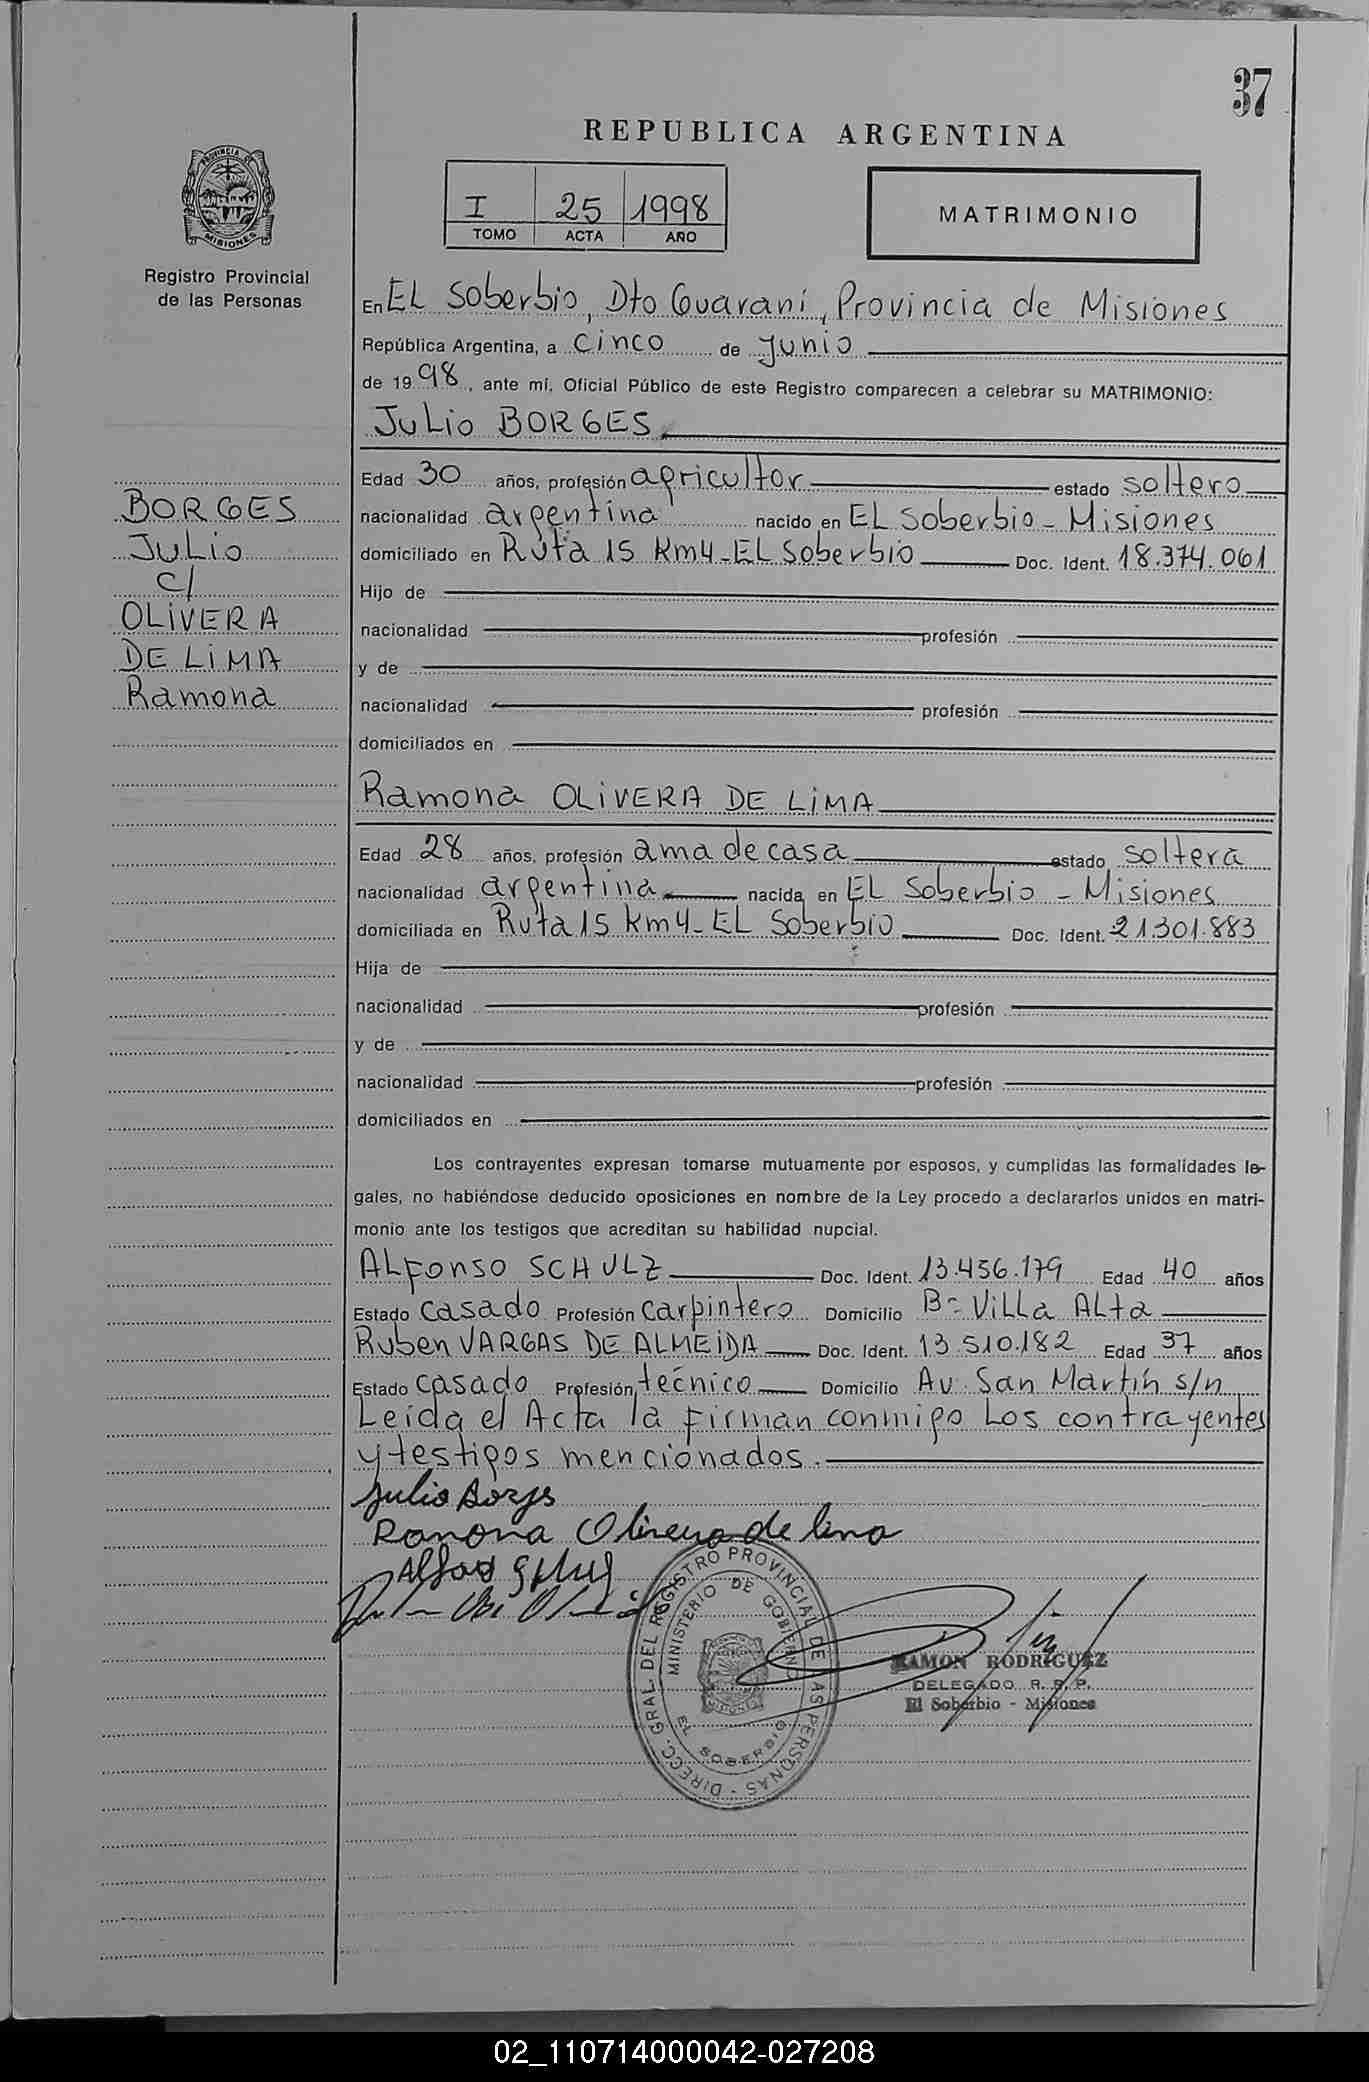 37
REPUBLICA ARGENTINA
I 25 1998
TOMO ACTA AÑO
MATRIMONIO
PROVINCIA DE MISIONES
Registro Provincial
de las Personas
BORGES
Julio
c/
OLIVERA
DE LIMA
Ramona
En EL Soberbio, Dto Guaraní, Provincia de Misiones
República Argentina, a cinco de junio
de 1998, ante mí, Oficial Público de este Registro comparecen a celebrar su MATRIMONIO:
Julio BORGES
Edad 30 años, profesión agricultor estado soltero
nacionalidad argentina nacido en EL Soberbio - Misiones
domiciliado en Ruta 15 Km4-EL Soberbio Doc. Ident. 18.374.061
Hijo de
nacionalidad profesión
y de
nacionalidad profesión
domiciliados en
Ramona OLIVERA DE LIMA
Edad 28 años, profesión ama de casa estado soltera
nacionalidad argentina nacida en EL Soberbio - Misiones
domiciliada en Ruta 15 Km4-EL Soberbio Doc. Ident. 21.301.883
Hija de
nacionalidad profesión
y de
nacionalidad profesión
domiciliados en
Los contrayentes expresan tomarse mutuamente por esposos, y cumplidas las formalidades le-
gales, no habiéndose deducido oposiciones en nombre de la Ley procedo a declararlos unidos en matri-
monio ante los testigos que acreditan su habilidad nupcial.
ALFONSO SCHULZ Doc. Ident. 13.456.179 Edad 40 años
Estado casado Profesión carpintero Domicilio B= ViLLa ALta
Ruben VARGAS DE ALMEIDA Doc. Ident. 13.510.182 Edad 37 años
Estado casado Profesión técnico Domicilio Av. San Martín s/n
Leída el Acta la firman conmigo Los contrayentes
y testigos mencionados.
Julio Borges
Ramona Olivera de lima
DIRECC. GRAL. DEL REGISTRO PROVINCIAL DE LAS PERSONAS -
MINISTERIO DE GOBIERNO
EL SOBERBIO
RAMON RODRIGUEZ
DELEGADO R. P. P.
El Soberbio - Misiones
02_110714000042-027208